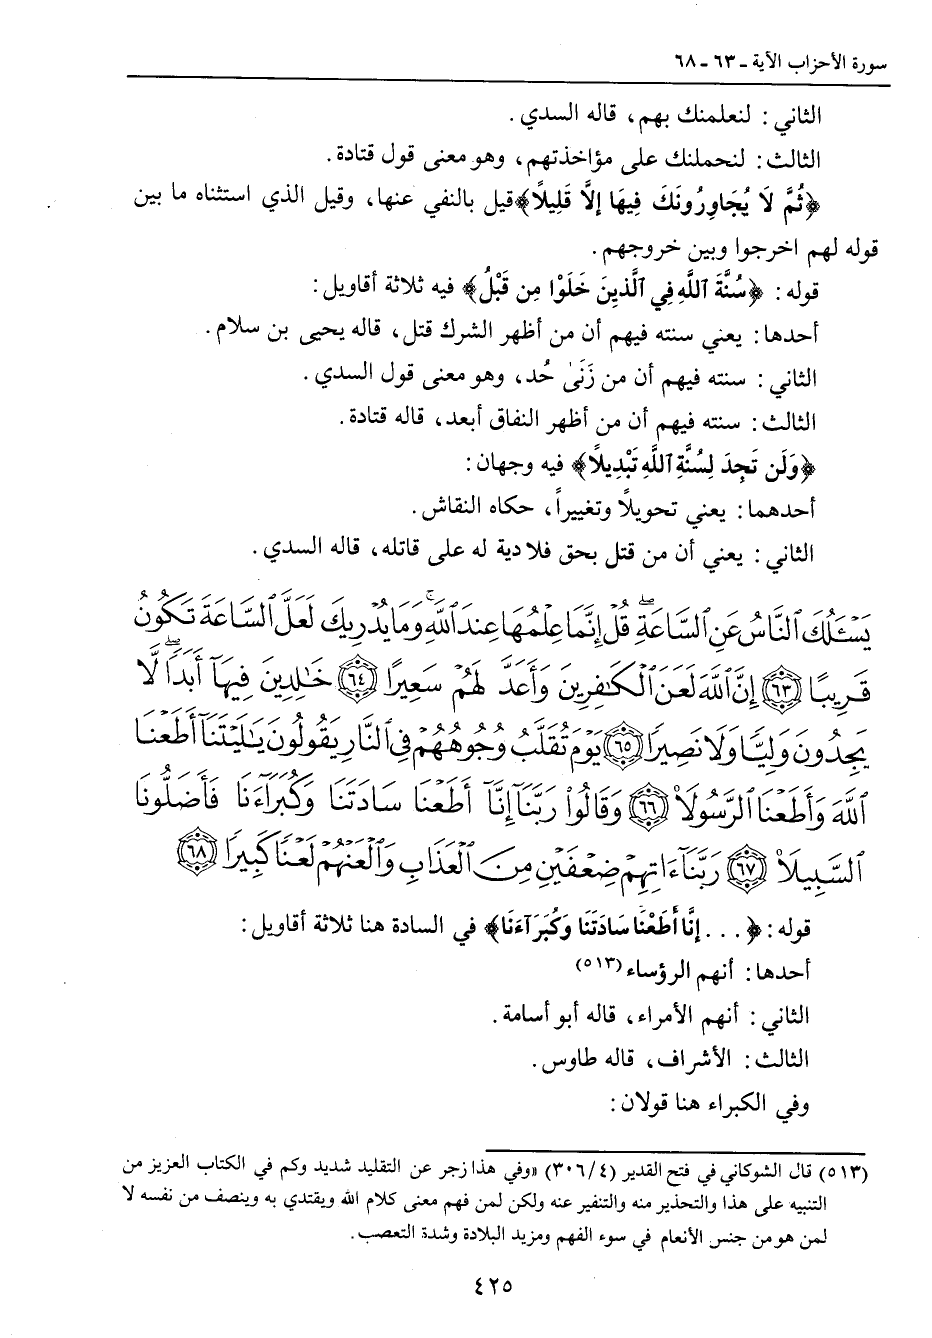 سورة الأحزاب الآية ـ ٦٣ ـ ٦٨
الثاني: لنعلمنك بهم، قاله السدي.
الثالث: لنحملنك على مؤاخذتهم، وهو معنى قول قتادة.
﴿ثُمَّ لَا يُجَاوِرُونَكَ فِيهَا إِلَّا قَلِيلًا﴾ قيل بالنفي عنها، وقيل الذي استثناه ما بين
قوله لهم اخرجوا وبين خروجهم.
قوله: ﴿سُنَّةَ ٱللَّهِ فِي ٱلَّذِينَ خَلَوْا مِن قَبْلُ﴾ فيه ثلاثة أقاويل:
أحدها: يعني سنته فيهم أن من أظهر الشرك قتل، قاله يحيى بن سلام.
الثاني: سنته فيهم أن من زَنَىٰ حُد، وهو معنى قول السدي.
الثالث: سنته فيهم أن من أظهر النفاق أبعد، قاله قتادة.
﴿وَلَن تَجِدَ لِسُنَّةِ ٱللَّهِ تَبْدِيلًا﴾ فيه وجهان:
أحدهما: يعني تحويلاً وتغييراً، حكاه النقاش.
الثاني: يعني أن من قتل بحق فلا دية له على قاتله، قاله السدي.
يَسْـَٔلُكَ ٱلنَّاسُ عَنِ ٱلسَّاعَةِۖ قُلْ إِنَّمَا عِلْمُهَا عِندَ ٱللَّهِۚ وَمَا يُدْرِيكَ لَعَلَّ ٱلسَّاعَةَ تَكُونُ
قَرِيبًا ٦٣ إِنَّ ٱللَّهَ لَعَنَ ٱلْكَٰفِرِينَ وَأَعَدَّ لَهُمْ سَعِيرًا ٦٤ خَٰلِدِينَ فِيهَآ أَبَدًاۖ لَّا
يَجِدُونَ وَلِيًّا وَلَا نَصِيرًا ٦٥ يَوْمَ تُقَلَّبُ وُجُوهُهُمْ فِي ٱلنَّارِ يَقُولُونَ يَٰلَيْتَنَآ أَطَعْنَا
ٱللَّهَ وَأَطَعْنَا ٱلرَّسُولَا۠ ٦٦ وَقَالُوا۟ رَبَّنَآ إِنَّآ أَطَعْنَا سَادَتَنَا وَكُبَرَآءَنَا فَأَضَلُّونَا
ٱلسَّبِيلَا۠ ٦٧ رَبَّنَآ ءَاتِهِمْ ضِعْفَيْنِ مِنَ ٱلْعَذَابِ وَٱلْعَنْهُمْ لَعْنًا كَبِيرًا ٦٨
قوله: ﴿. . . إِنَّا أَطَعْنَا سَادَتَنَا وَكُبَرَآءَنَا﴾ في السادة هنا ثلاثة أقاويل:
أحدها: أنهم الرؤساء (٥١٣)
الثاني: أنهم الأمراء، قاله أبو أسامة.
الثالث: الأشراف، قاله طاوس.
وفي الكبراء هنا قولان:
(٥١٣) قال الشوكاني في فتح القدير (٤/ ٣٠٦) «وفي هذا زجر عن التقليد شديد وكم في الكتاب العزيز من
التنبيه على هذا والتحذير منه والتنفير عنه ولكن لمن فهم معنى كلام الله ويقتدي به وينصف من نفسه لا
لمن هو من جنس الأنعام في سوء الفهم ومزيد البلادة وشدة التعصب.
٤٢٥